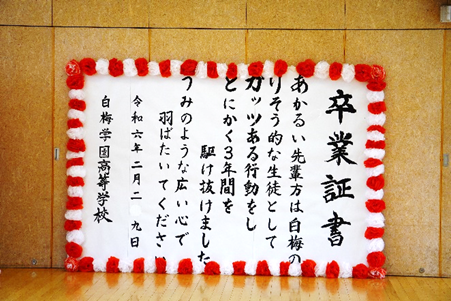 卒業証書
あかるい先輩方は白梅の
りそう的な生徒として
ガッツある行動をし
とにかく3年間を
駆け抜けました
うみのような広い心で
羽ばたいてください
令和六年二月二九日
白梅学園高等学校